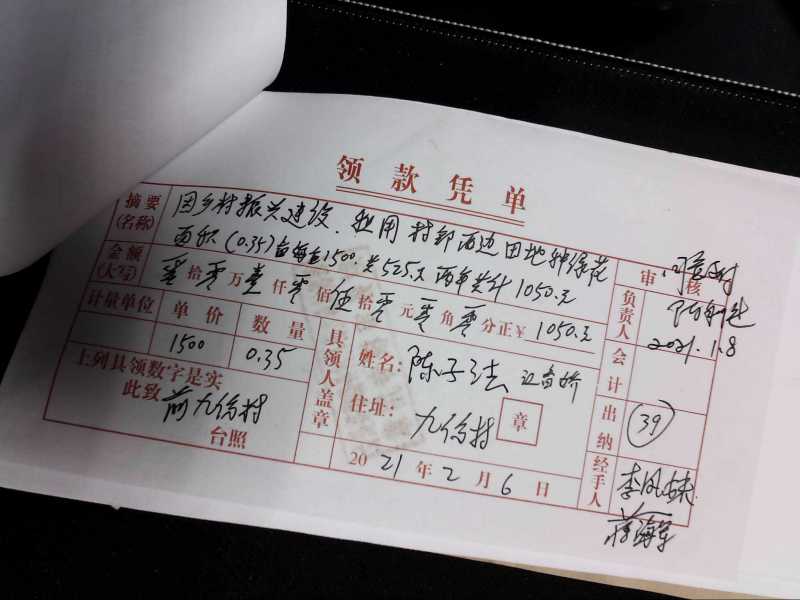 领款凭单
摘要(名称) 因乡村振兴建设.租用村部西边田地种绿花
面积(0.35)亩每亩1500.共525.元两年共计1050.元
金额(大写) 零拾零万壹仟零佰伍拾零元零角零分正¥1050.元
计量单位 单价 数量
1500 0.35
上列具领数字是实
此致 前九份村
台照
具领人盖章
姓名:陈子法
住址:九份村 章
2021年2月6日
审核
负责人
2021.1.8
会计
出纳 39
经手人 李凤妹